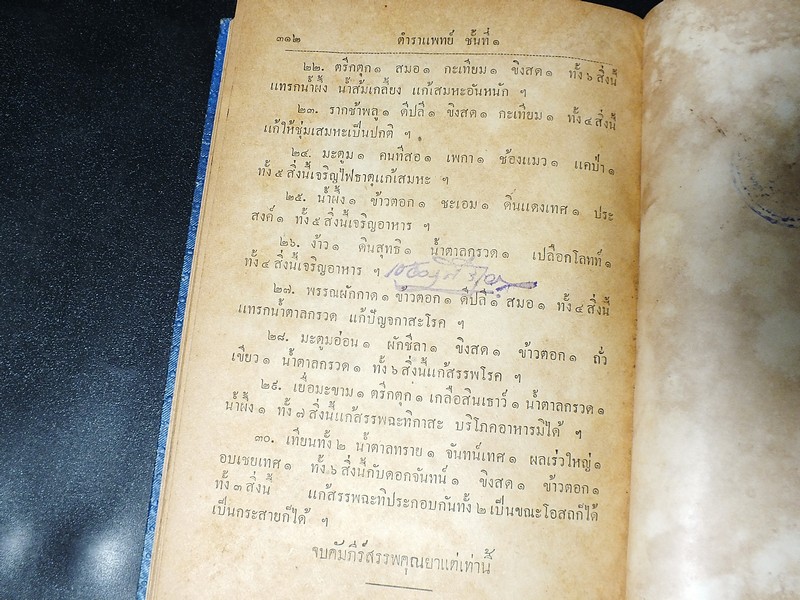 ๓๑๒ ตำราแพทย์ ชั้นที่ ๑
๒๒. ตรีกตุก ๑ สมอ ๑ กะเทียม ๑ ขิงสด ๑ ทั้ง ๖ สิ่งนี้
แทรกน้ำผึ้ง น้ำส้มเกลี้ยง แก้เสมหะอันหนัก ฯ
๒๓. รากช้าพลู ๑ ดีปลี ๑ ขิงสด ๑ กะเทียม ๑ ทั้ง ๔ สิ่งนี้
แก้ให้ชุ่มเสมหะเป็นปกติ ฯ
๒๔. มะตูม ๑ คนทีสอ ๑ เพกา ๑ ช้องแมว ๑ แคป่า ๑
ทั้ง ๕ สิ่งนี้เจริญไฟธาตุแก้เสมหะ ฯ
๒๕. น้ำผึ้ง ๑ ข้าวตอก ๑ ชะเอม ๑ ดินแดงเทศ ๑ ประ
สงค์ ๑ ทั้ง ๕ สิ่งนี้เจริญอาหาร ฯ
๒๖. ง้าว ๑ ดินสุทธิ ๑ น้ำตาลกรวด ๑ เปลือกโลทท์ ๑
ทั้ง ๔ สิ่งนี้เจริญอาหาร ฯ
๒๗. พรรณผักกาด ๑ ข้าวตอก ๑ ดีปลี ๑ สมอ ๑ ทั้ง ๔ สิ่งนี้
แทรกน้ำตาลกรวด แก้ปัญจกาสะโรค ฯ
๒๘. มะตูมอ่อน ๑ ผักชีลา ๑ ขิงสด ๑ ข้าวตอก ๑ ถั่ว
เขียว ๑ น้ำตาลกรวด ๑ ทั้ง ๖ สิ่งนี้แก้สรรพโรค ฯ
๒๙. เยื่อมะขาม ๑ ตรีกตุก ๑ เกลือสินเธาว์ ๑ น้ำตาลกรวด ๑
น้ำผึ้ง ๑ ทั้ง ๗ สิ่งนี้แก้สรรพฉะทิกาสะ บริโภคอาหารมิได้ ฯ
๓๐. เทียนทั้ง ๒ น้ำตาลทราย ๑ จันทน์เทศ ๑ ผลเร่วใหญ่ ๑
อบเชยเทศ ๑ ทั้ง ๖ สิ่งนี้กับดอกจันทน์ ๑ ขิงสด ๑ ข้าวตอก ๑
ทั้ง ๓ สิ่งนี้ แก้สรรพฉะทิประกอบกันทั้ง ๒ เป็นขณะโอสถก็ได้
เป็นกระสายก็ได้ ฯ
จบคัมภีร์สรรพคุณยาแต่เท่านี้